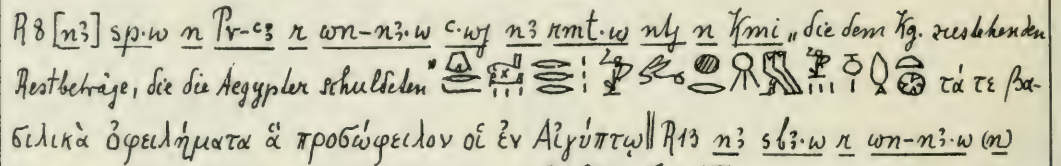 R8 [nꜣ] sp·w n Pr-ꜥꜣ r wn-nꜣ·w ꜥ·wj nꜣ rmt·w ntj n Kmi „die dem Kg. zustehenden
Restbeträge, die die Aegypter schuldeten" τά τε βα-
σιλικὰ ὀφειλήματα ἃ προσώφειλον οἱ ἐν Αἰγύπτῳ || R13 nꜣ sbꜣ·w r wn-nꜣ·w (n)